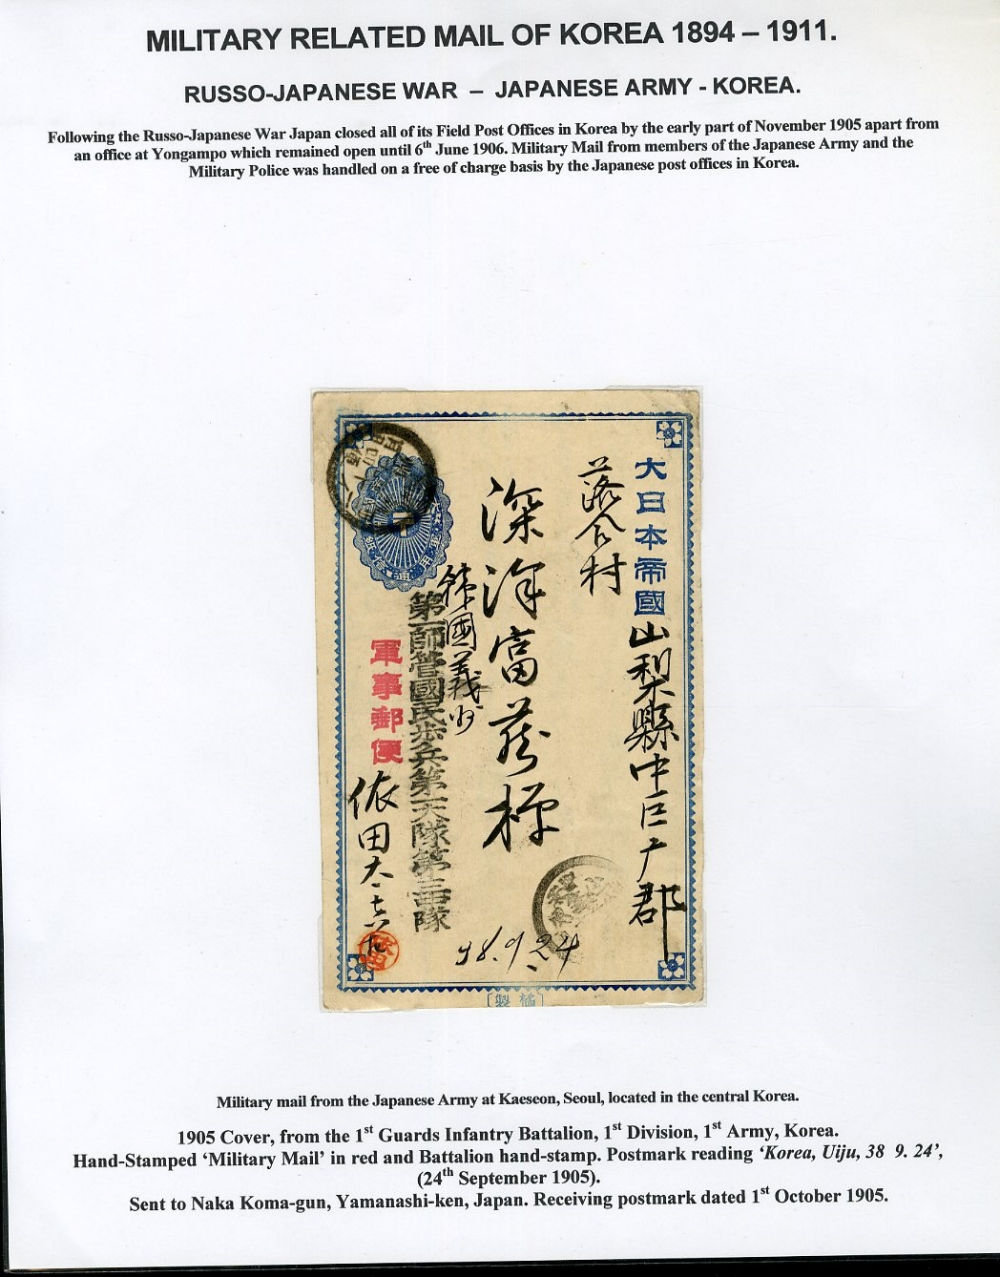 MILITARY RELATED MAIL OF KOREA 1894 – 1911.
RUSSO-JAPANESE WAR – JAPANESE ARMY - KOREA.
Following the Russo-Japanese War Japan closed all of its Field Post Offices in Korea by the early part of November 1905 apart from
an office at Yongampo which remained open until 6th June 1906. Military Mail from members of the Japanese Army and the
Military Police was handled on a free of charge basis by the Japanese post offices in Korea.
大日本帝國
山梨縣中巨广郡
落合村
深沢富蔵様
韓國義州
第一師管國民歩兵第一大隊第三中隊
軍事郵便
依田
38.9.24
Military mail from the Japanese Army at Kaeseon, Seoul, located in the central Korea.
1905 Cover, from the 1st Guards Infantry Battalion, 1st Division, 1st Army, Korea.
Hand-Stamped ‘Military Mail’ in red and Battalion hand-stamp. Postmark reading ‘Korea, Uiju, 38 9. 24’,
(24th September 1905).
Sent to Naka Koma-gun, Yamanashi-ken, Japan. Receiving postmark dated 1st October 1905.